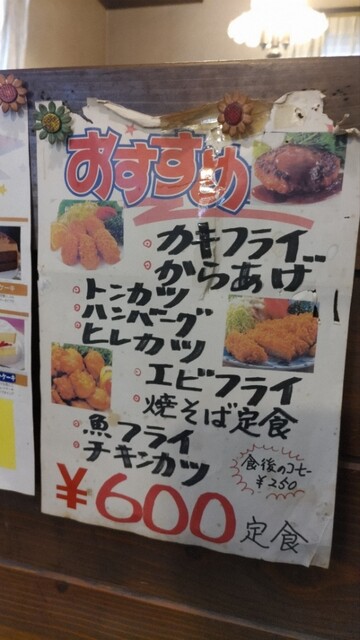 おすすめ
カキフライ
からあげ
トンカツ
ハンバーグ
ヒレカツ
エビフライ
焼そば定食
魚フライ
チキンカツ
食後のコーヒー
¥250
¥600 定食